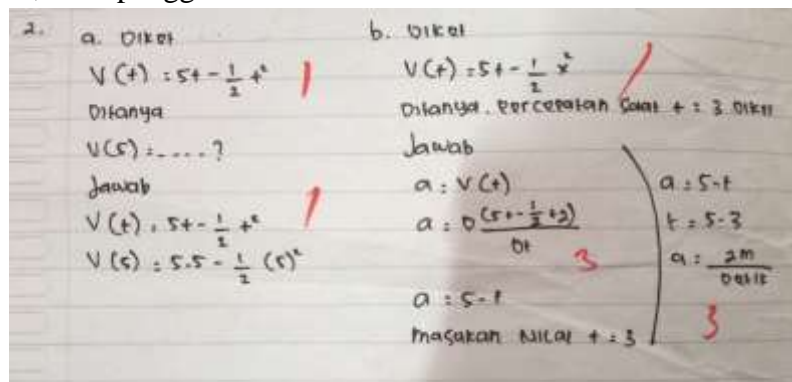 2.
a. Diket
V(t) = 5t - 1/2 t²
1
Ditanya
V(5) = .... ?
Jawab
V(t) = 5t - 1/2 t²
1
V(5) = 5.5 - 1/2 (5)²
b. Diket
V(t) = 5t - 1/2 x²
1
Ditanya. Percepatan saat t = 3
Jawab
a = V(t)
a = D(5t - 1/2 t2)/Dt
3
a = 5-t
masukan Nilai t = 3
a = 5-t
t = 5-3
a = 2m/Detik
3